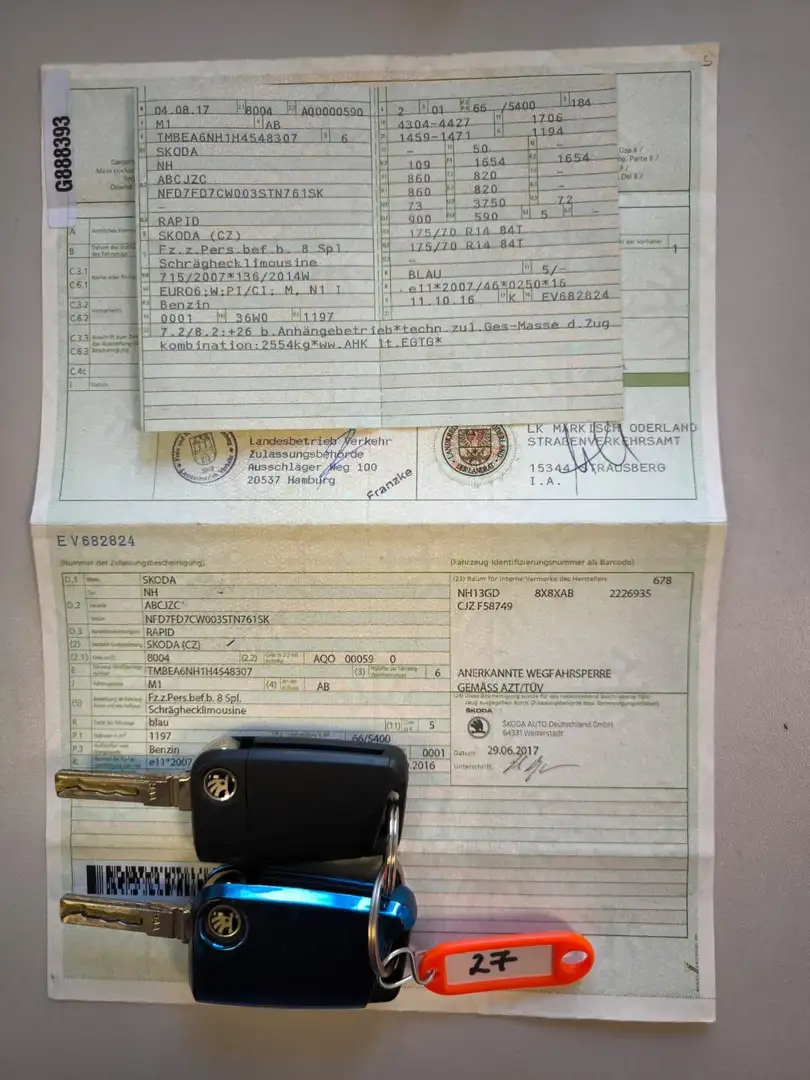 G888393
04.08.17 8004 AQ0000590
M1 AB
TMBEA6NH1H4548307 6
SKODA
NH
ABCJZC
NFD7FD7CW003STN761SK
–
RAPID
SKODA (CZ)
Fz.z.Pers.bef.b. 8 Spl.
Schrägheckl​imousine
715/2007*136/2014W
EURO6;W;PI/CI; M, N1 I
Benzin
0001 36W0 1197
2 01 66 /5400 184
4304-4427 1706
1459-1471 1194
– 50 –
109 1654 1654
860 820 –
860 820 –
73 3750 72
900 590 5 –
175/70 R14 84T
175/70 R14 84T
–
BLAU 5/–
e11*2007/46*0250*16
11.10.16 K EV682824
7.2/8.2:+26 b.Anhängebetrieb*techn.zul.Ges-Masse d.Zug
kombination:2554kg*ww.AHK lt.EGTG*
A
B
C.3.1
C.6.1
C.3.2
C.6.2
C.3.3
C.6.3
C.4c
I Datum
1
Landesbetrieb Verkehr
Zulassungsbehörde
Ausschläger Weg 100
20537 Hamburg
Franzke
LK MÄRKISCH ODERLAND
STRAßENVERKEHRSAMT
15344 STRAUSBERG
I.A.
EV682824
(Nummer der Zulassungsbescheinigung)
(Fahrzeug-Identifizierungsnummer als Barcode)
D.1 SKODA
NH
D.2 ABCJZC
NFD7FD7CW003STN761SK
D.3 RAPID
(2) SKODA (CZ)
(2.1) 8004 (2.2) AQO 00059 0
E TMBEA6NH1H4548307 (3) 6
J M1 (4) AB
(5) Fz.z.Pers.bef.b. 8 Spl.
Schräghecklimousine
R blau (11) 5
P.1 1197 66/5400
P.3 Benzin 0001
K e11*2007 .2016
(23) Raum für interne Vermerke des Herstellers 678
NH13GD 8X8XAB 2226935
CJZ F58749
ANERKANNTE WEGFAHRSPERRE
GEMÄSS AZT/TÜV
ŠKODA
ŠKODA AUTO Deutschland GmbH
64331 Weiterstadt
Datum 29.06.2017
Unterschrift
27